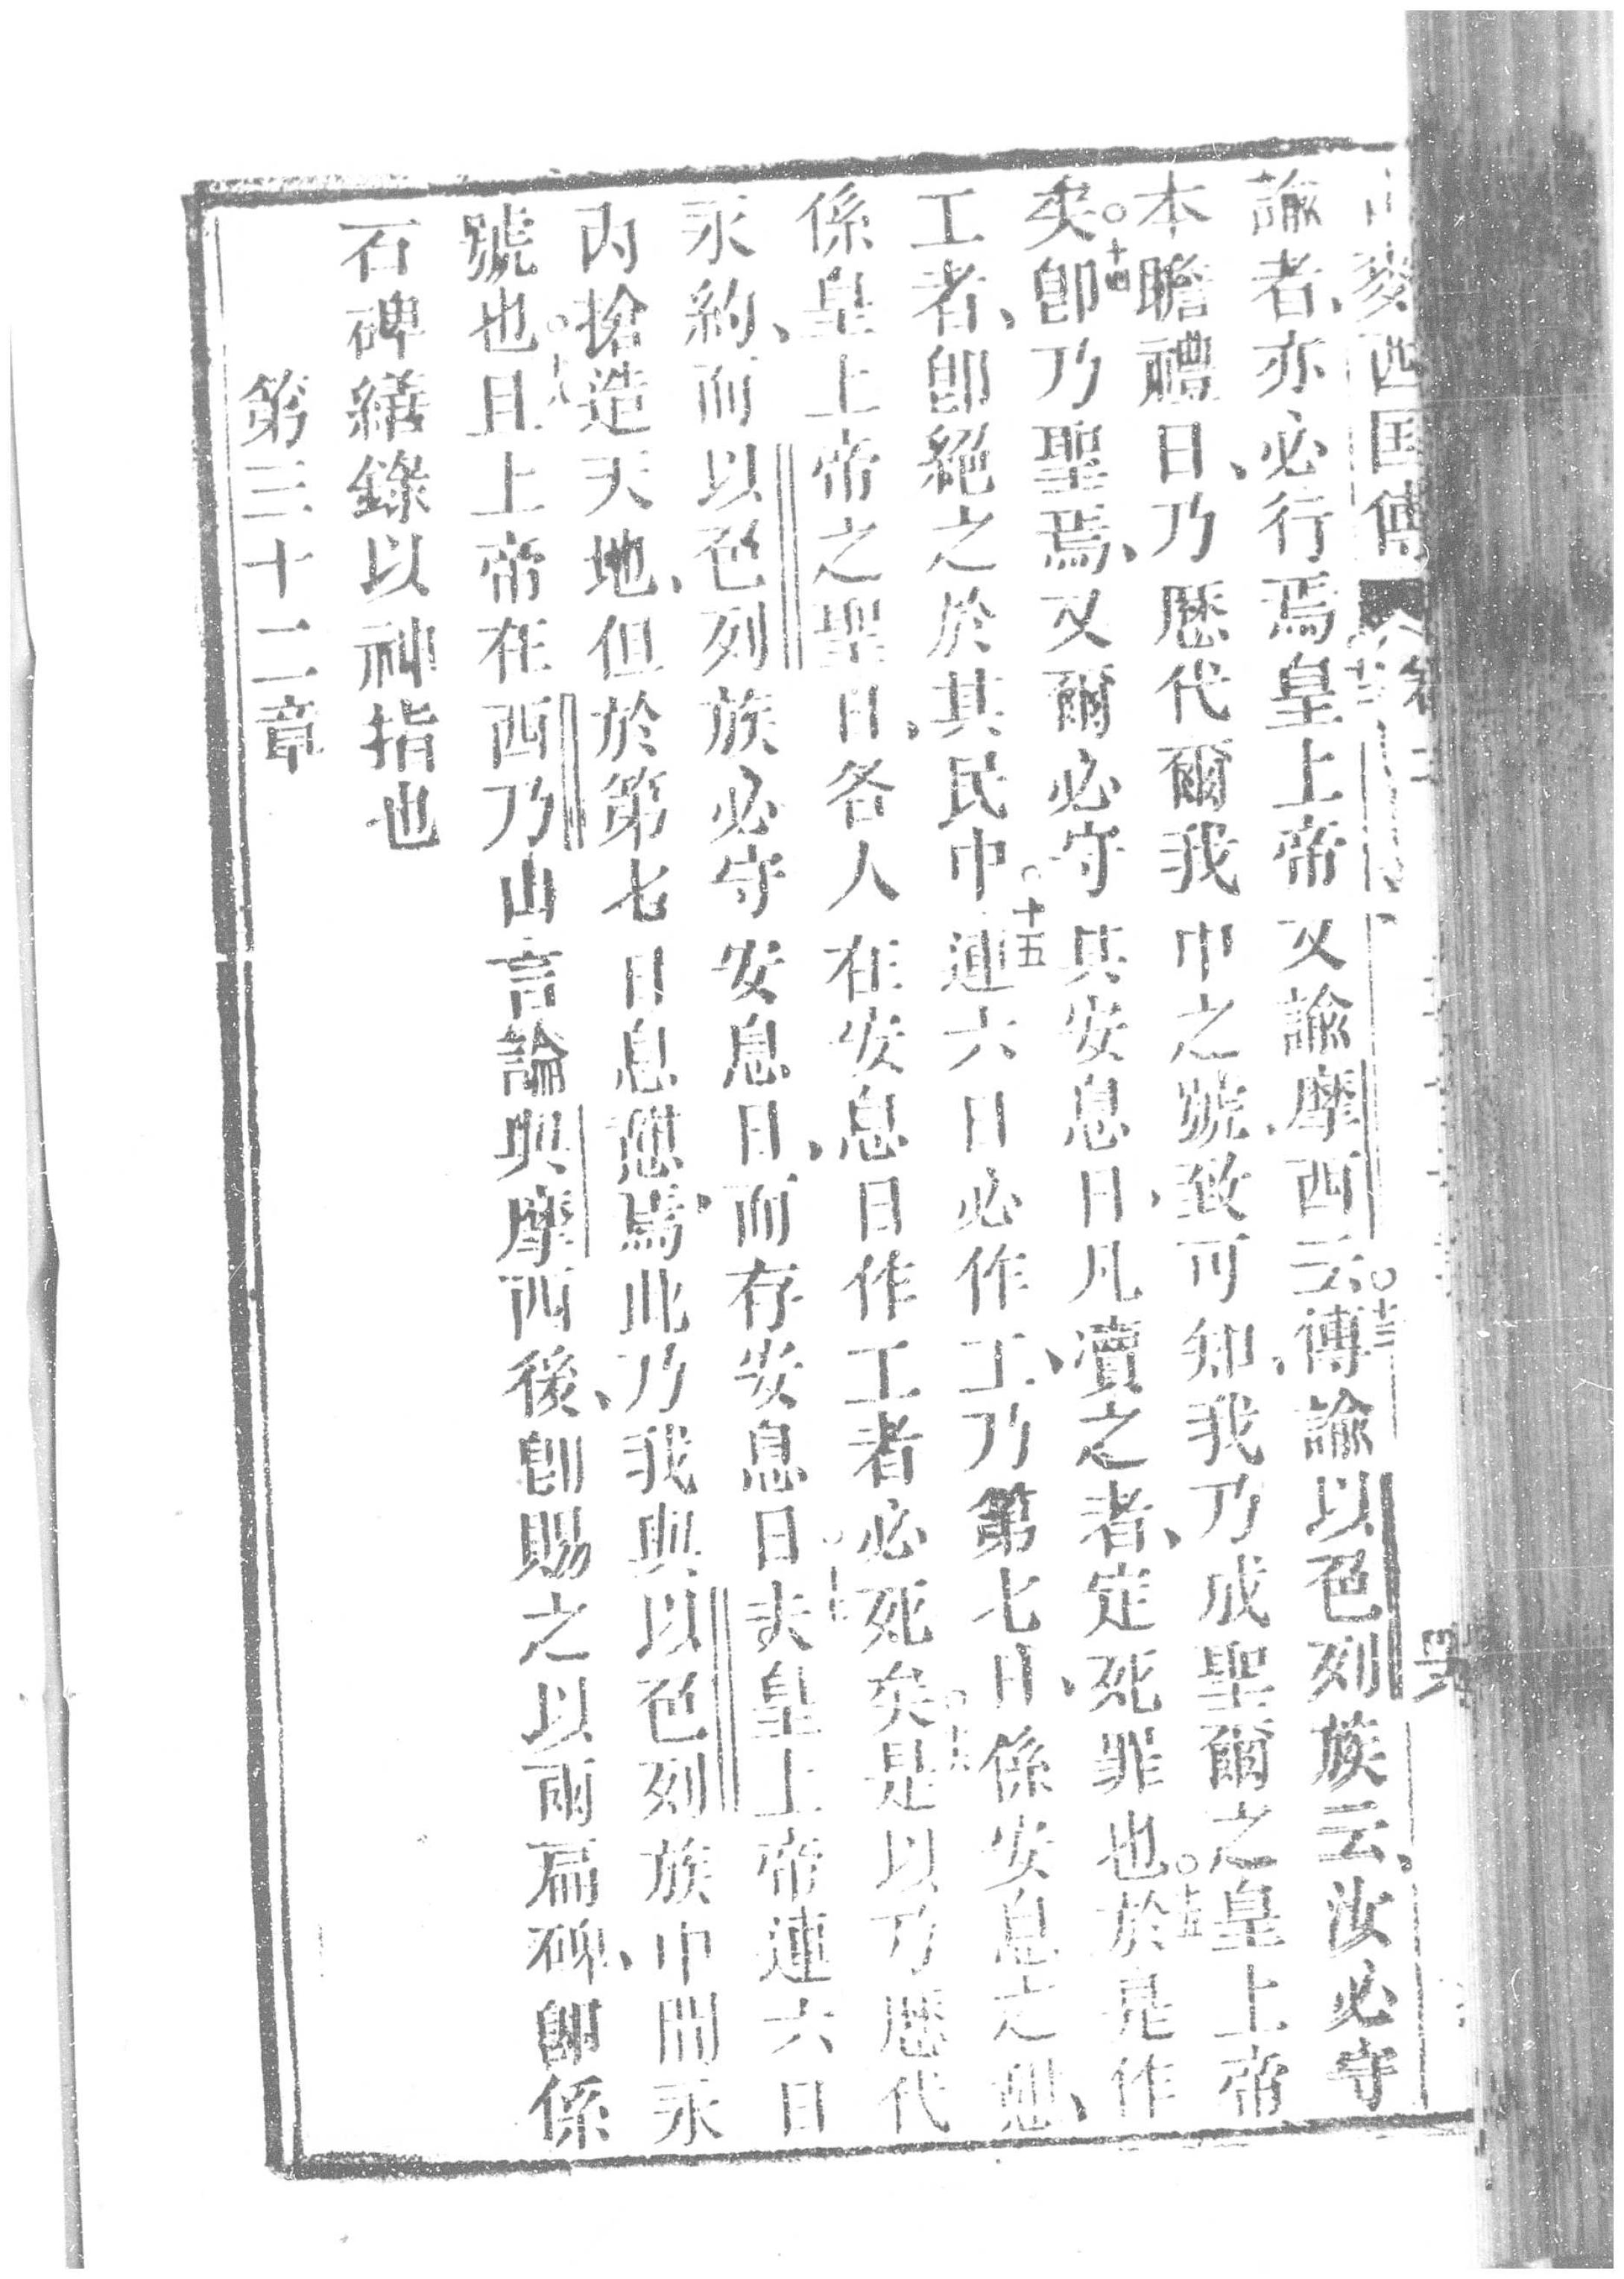 麥西国傳
諭者、亦必行焉皇上帝又諭摩西云。十三傳諭以色列族云、汝必守
本瞻禮日、乃厯代爾我中之號、致可知、我乃成聖爾之皇上帝
矣。十四卽乃聖焉、又爾必守其安息日、凡賣之者、定死罪也。於是作
工者、卽絕之於其民中。十五連六日必作工、乃第七日、係安息之憇、
係皇上帝之聖日、各人在安息日作工者必死矣。是以乃厯代
永約、而以色列族必守安息日、而存安息日。夫皇上帝連六日
內搶造天地、但於第七日息憇焉、此乃我與以色列族中間永
號也。且上帝在西乃山言論與摩西後、卽賜之以兩扁碑、卽係
石碑繕錄以神指也
第三十二章